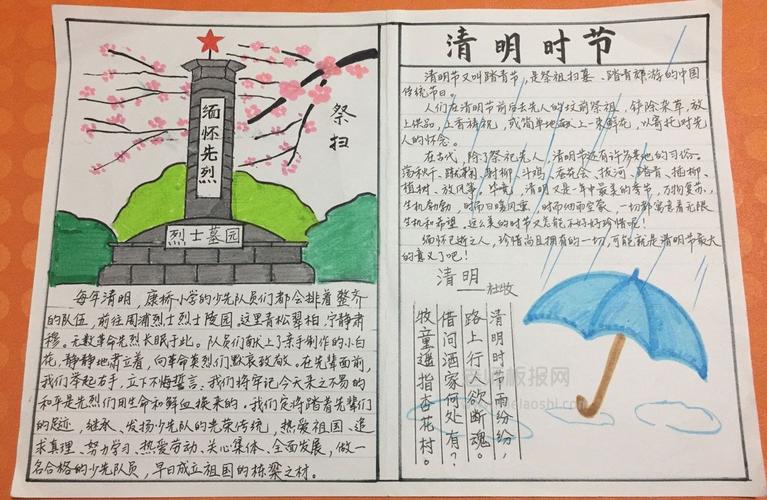 缅怀先烈
祭扫
烈士墓园
每年清明，康桥小学的少先队员们都会排着整齐
的队伍，前往周浦烈士烈士陵园。这里青松翠柏，宁静肃
穆。无数革命先烈长眠于此。队员们献上了亲手制作的小白
花，静静地肃立着，向革命英烈们默哀致敬。在先辈面前，
我们举起右手，立下不悔誓言：我们将牢记今天来之不易的
和平是先烈们用生命和鲜血换来的。我们定将踏着先辈们
的足迹，继承、发扬少先队的光荣传统，热爱祖国、追
求真理、努力学习、热爱劳动、关心集体、全面发展，做一
名合格的少先队员，早日成立祖国的栋梁之材。
清明时节
清明节又叫踏青节，是祭祖扫墓、踏青郊游的中国
传统节日。
人们在清明节前后去先人的坟前祭祖，铲除杂草，放
上供品，上香祷祝，或简单地献上一束鲜花，以寄托对先
人的怀念。
在古代，除了祭祀先人，清明节还有许多其他的习俗。
荡秋千、蹴鞠、射柳、斗鸡、蚕花会、拔河、踏青、插柳、
植树、放风筝。毕竟，清明又是一年中最美的季节，万物复苏，
生机勃勃，时而日暖风熏，时而细雨空蒙，一切都寓意着无限
生机和希望。这么美的时节又怎能不好好珍惜呢！
缅怀已逝之人，珍惜尚且拥有的一切，可能就是清明节最大
的意义了吧！
清明
——杜牧
清明时节雨纷纷，
路上行人欲断魂。
借问酒家何处有？
牧童遥指杏花村。